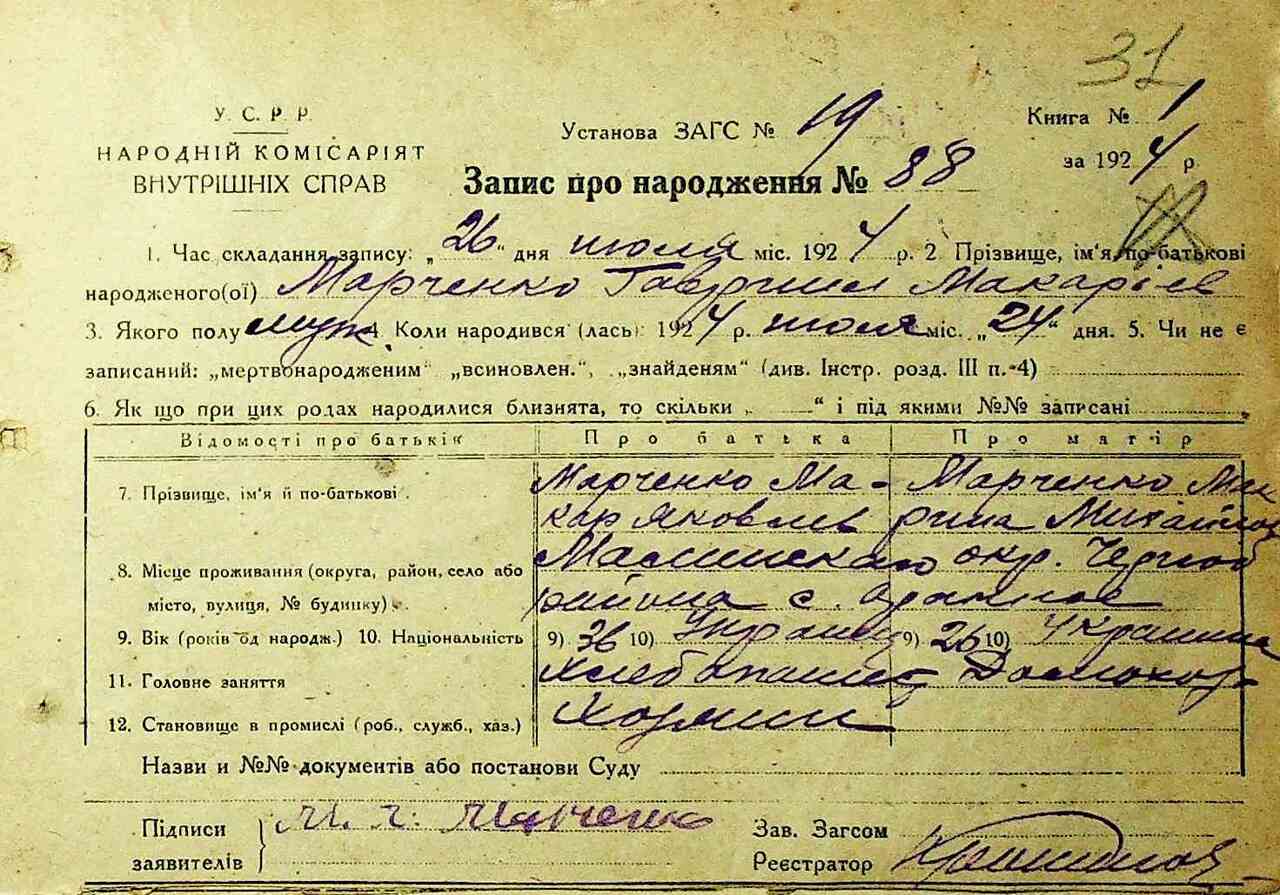 31
У. С. Р. Р.
НАРОДНІЙ КОМІСАРІЯТ
ВНУТРІШНІХ СПРАВ
Установа ЗАГС № 19
Запис про народження № 88
Книга № 1
за 1924 р.
1. Час складання запису: „26" дня июля міс. 1924 р. 2 Прізвище, ім'я, по-батькові
народженого(ої) Марченко Гавриил Макариев
3. Якого полу муж 4. Коли народився (лась): 1924 р. июля міс. „24" дня. 5. Чи не є
записаний: „мертвонародженим" „всиновлен.", „знайденям" (див. Інстр. розд. III п.-4)
6. Як що при цих родах народилися близнята, то скільки „ " і під якими №№ записані
Відомості про батьків Про батька Про матір
7. Прізвище, ім'я й по-батькові. Марченко Ма- Марченко Мак
кар Яковлев рина Михайлов
8. Місце проживання (округа, район, село або окр.
місто, вулиця, № будинку). района с.
9. Вік (років од народж.) 10. Національність 9) 36 10) Украинец 9) 26 10) Украинка
11. Головне заняття Хлебопашец Домохоз
12. Становище в промислі (роб., служб., хаз.) Хозяин
Назви и №№ документів або постанови Суду
Підписи
заявителів
М. Я. Марченко
Зав. Загсом
Реєстратор